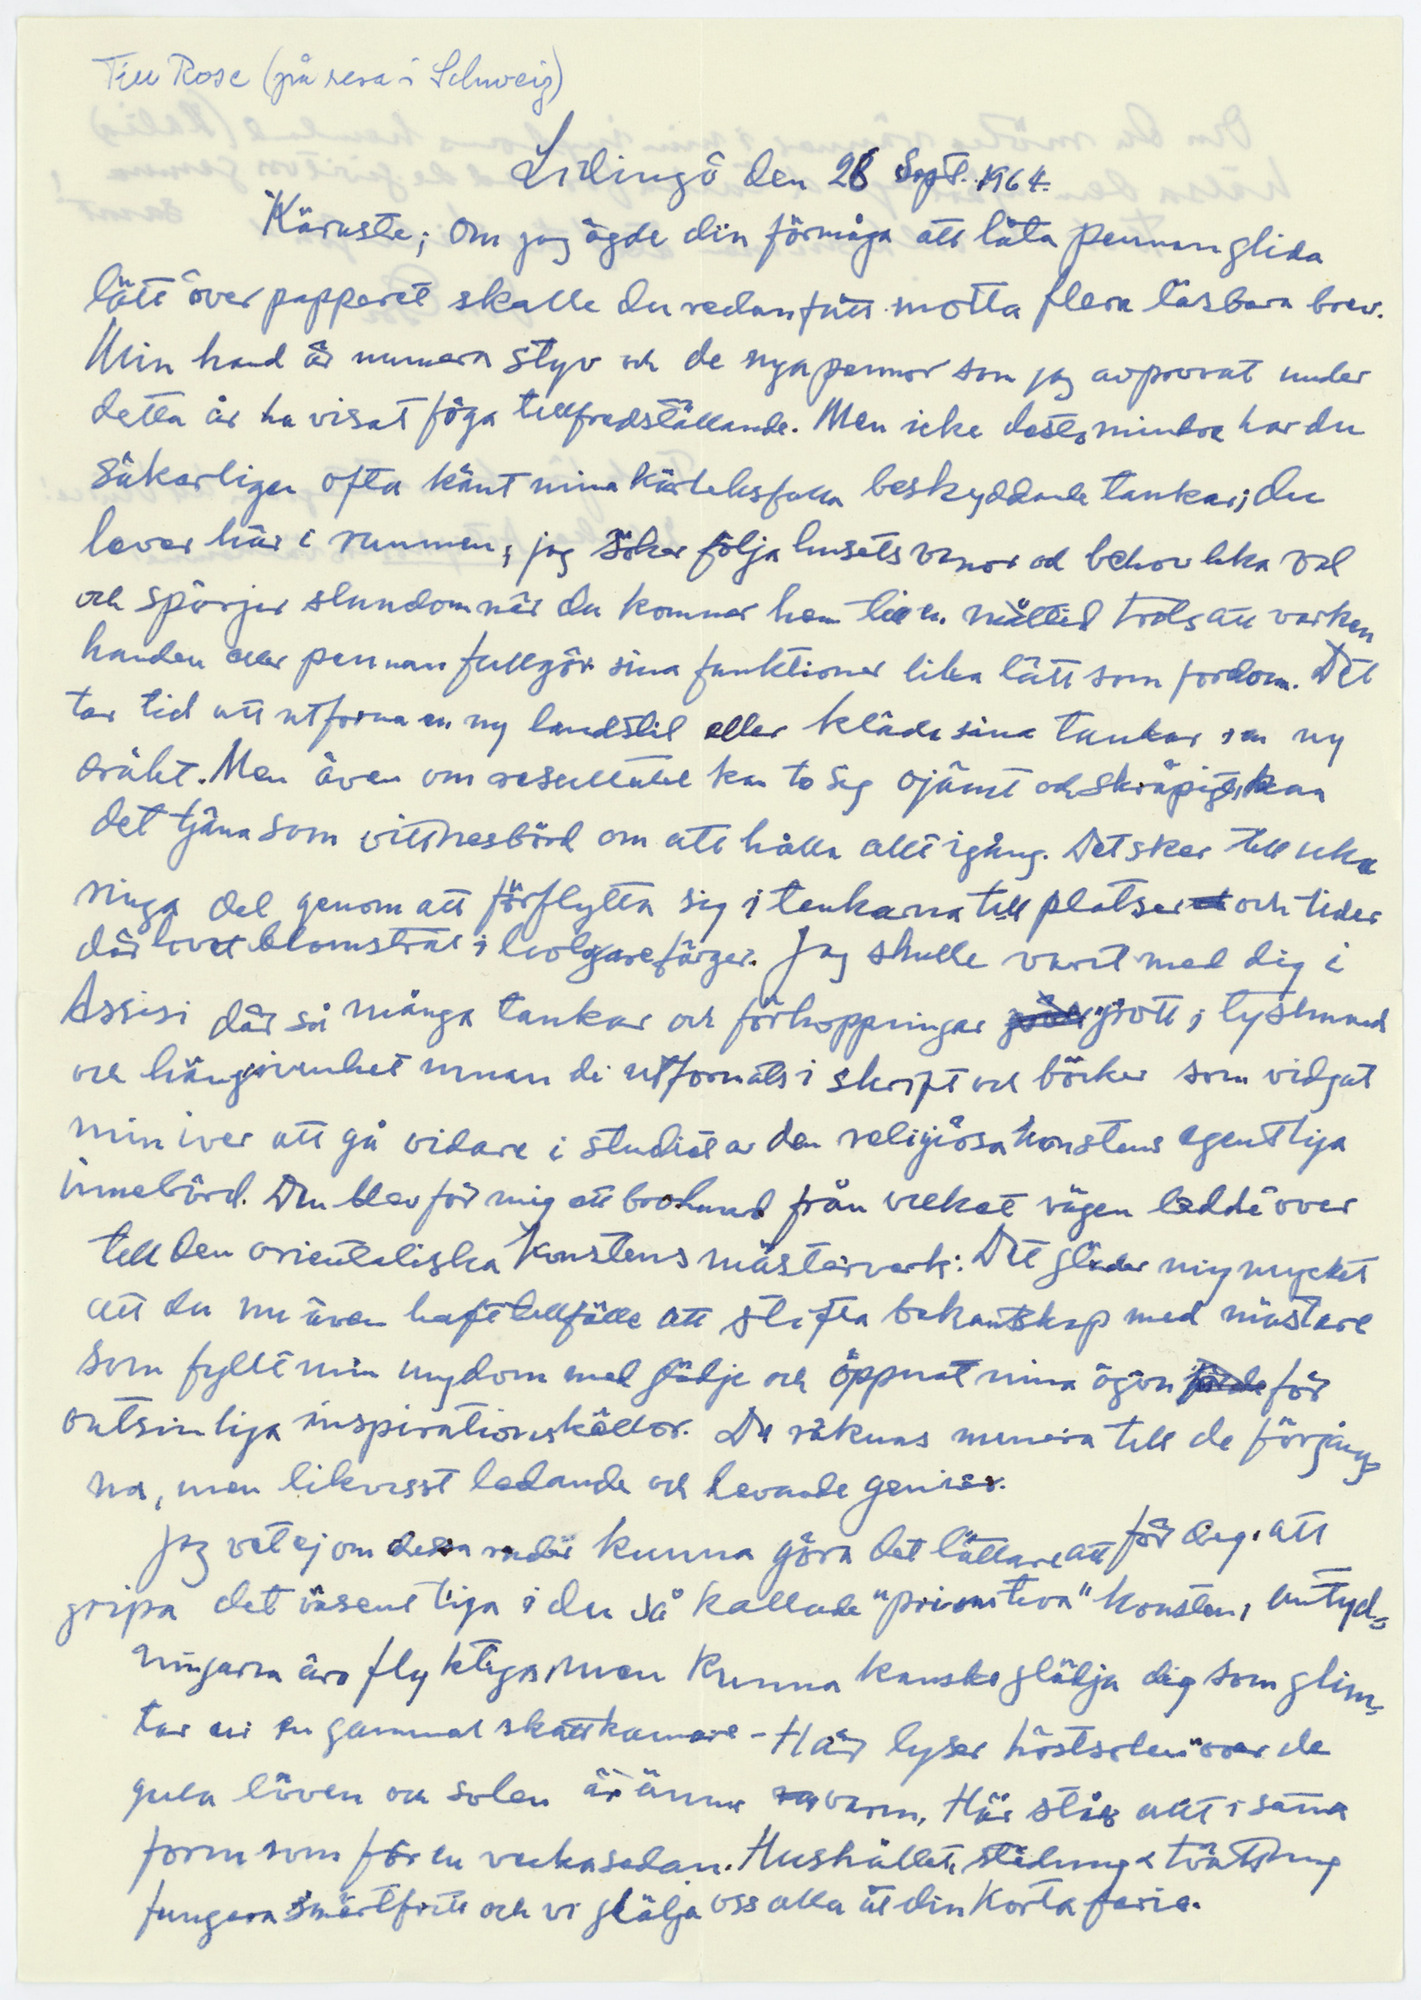 Till Rose (på resa i Schweiz)
Lidingö den 28 Sept. 1964.
Käraste; Om jag ägde din förmåga att låta pennan glida
lätt över papperet skulle du redan fått motta flera läsbara brev.
Min hand är numera styv och de nya pennor som jag avprovat under
detta år ha visat föga tillfredställande. Men icke desto mindre har du
säkerligen ofta känt mina kärleksfulla beskyddande tankar; du
lever här i rummen, jag söker följa husets vanor och behov lika väl
och spörjer stundom när du kommer hem till en måltid trots att varken
handen eller pennan fullgör sina funktioner lika lätt som fordom. Det
tar tid att utforma en ny handstil eller kläda sina tankar i en ny
dräkt. Men även om resultatet kan te sig ojämt och skräpigt, kan
det tjäna som vittnesbörd om att hålla allt igång. Det sker till icke
ringa del genom att förflytta sig i tankarna till platser och tider
där livet blomstrat i livligare färger. Jag skulle varit med dig i
Assisi där så många tankar och förhoppningar grott i tystnad
och hängivenhet innan de utformats i skrift och böcker som vidgat
min iver att gå vidare i studiet av den religiösa konstens egentliga
innebörd. Den blev för mig ett brohuvud från vilket vägen ledde över
till den orientaliska konstens mästerverk. Det gläder mig mycket
att du nu även haft tillfälle att stifta bekantskap med mästare
som fyllt min ungdom med glädje och öppnat mina ögon för
outsinliga inspirationskällor. De räknas numera till de förgång-
na, men likvisst ledande och levande genier.
Jag vet ej om dessa rader kunna göra det lättare att för dig att
gripa det väsentliga i den så kallade "primitiva" konsten, antyd-
ningarna äro flyktiga, men kunna kanske glädja dig som glim-
tar ur en gammal skattkamare - Här lyser höstsolen över de
gula löven och solen är ännu varm. Här står allt i samma
form som för en vecka sedan. Hushållet, städning & tvättning
fungera smärtfritt och vi glädja oss alla åt din korta ferie.